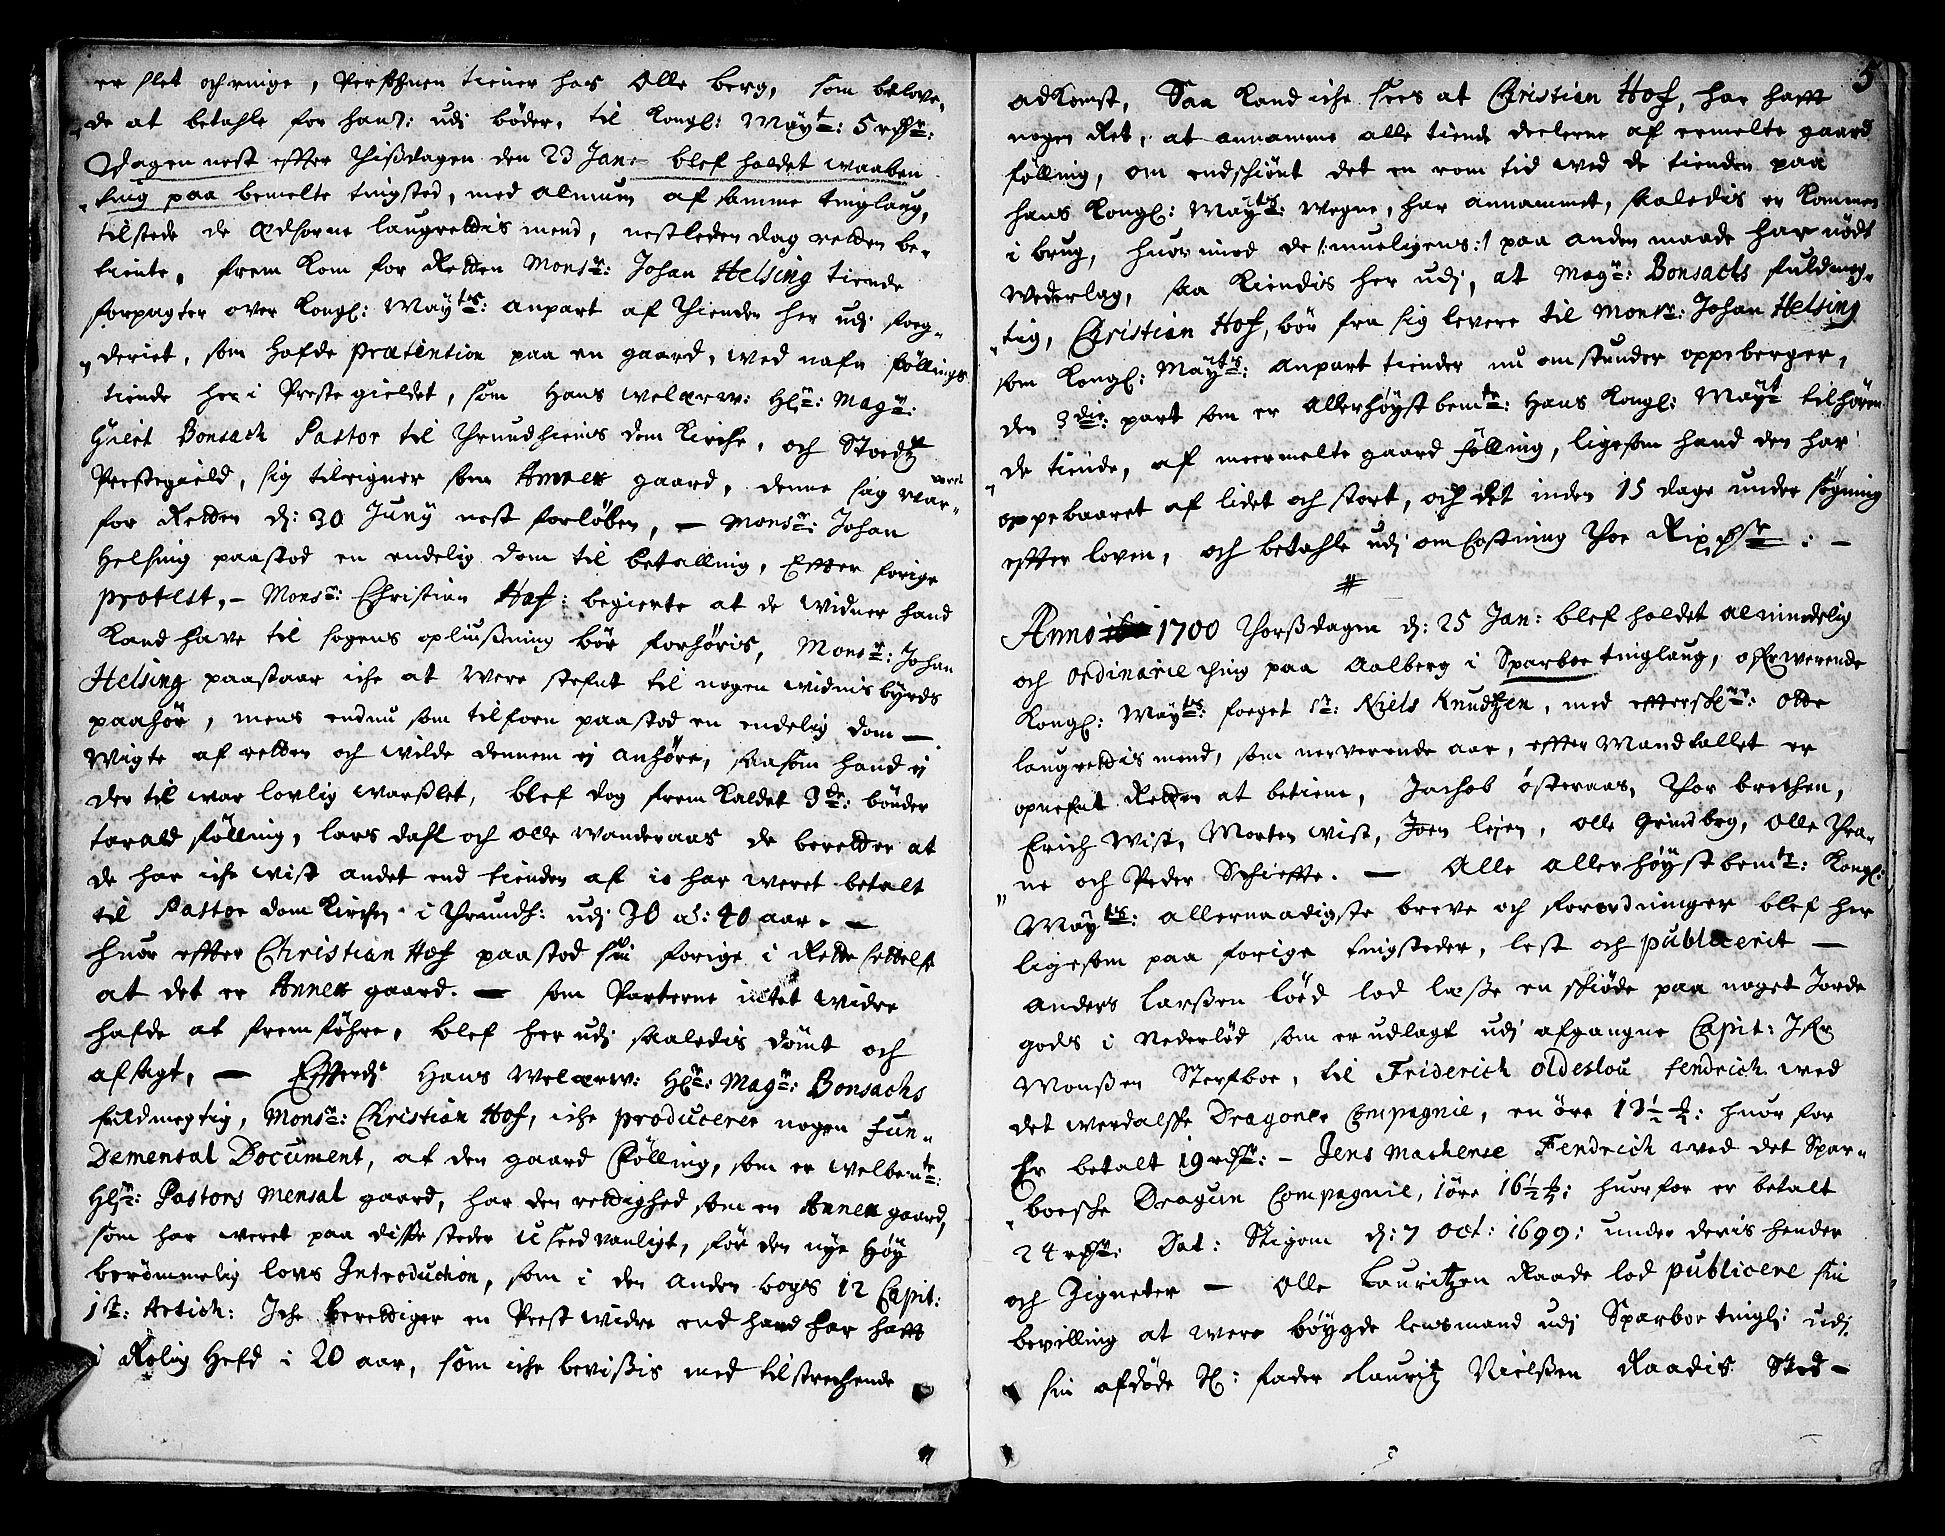 er slet och ringe, Persohnen tiener hos Olle berg, som belove,
de at betahle for hans: udj bøder, til Kongl: Mayt: 5 rdr:
Dagen nest effter Thißdagen den 23 Jan: blef holdet waaben
ting paa bemelte tingsted, med almuen af samme tinglaug,
tilstede de Edsorne laugrettis mend, nestleden dag retten be-
tiente, frem kom for Retten Monsr: Johan Helsing tiende
forpagter over Kongl: Mayts: anpart af Thienden her udj foeg-
deriet, som hafde prætention paa en gaard, wed nafn føllings
tiende her i Prestegieldet, som Hans welærw: Hr: Magr:
Gviert Bonsach Pastor til Thrundhiems dom Kirche, och Stods
Prestegield, sig tilreigner som Annex gaard, denne sag war
for Retten d: 30 Junij nest forløben, — Monsr: Johan
Helsing paastod en endelig dom til betalling, Effter forige
protest, – Monsr: Christian Hof: begierte at de widner hand
kand have til sagens opliußning bør forhøris, Monsr: Johan
Helsing paastaar iche at were stefnt til nogen widnis byrds
paahør, mens endnu som tilforn paastod en endelig dom —
Wigte af retten och wilde dennem ej anhøre, saasom hand ej
der til war lovlig warßlet, blef dog frem kaldet 3de: bønder
tarald følling, lars dahl och olle wanderaas de beretter at
de har iche wist andet end tienden af io har weret betalt
til Pastor dom Kirchen i Thrundh: udj 30 a: 40 aar. —
huor effter Christian Hof paastod sin forige i Rette settelse
at det er Annex gaard. — som Parterne intet widre
hafde at fremføhre, blef her udj saaledis dømt och
afsagt, — Efterdj Hans Welærw: Hr: Magr: Bonsachs
fuldmegtig, Monsr: Christian Hof, iche producerer nogen fun-
Demental Document, at den gaard Følling, som er welbemte:
Hr: Pastors Mensal gaard, har den rettighed som en Annex gaard,
som har weret paa disse steder u seedvanligt, før den nye Høy
berømmelig lovs Introduction, som i den anden bogs 12 Capit:
1st: Artich: Iche berettiger en Prest widre end hand har hafft
i Rolig Hefd i 20 aar, som iche bevißis med tilstrechende
5
adkomst, Saa kand iche sees at Christian Hof, har hafft
nogen Ret, at annamme alle tiende deelene af ermelte gaard
følling, om endschiønt det en rom tid wed de tienden paa
hans Kongl: Mayts: wegne, har annammet, saaledis er kommen
i brug, huor imod de /: mueligens :/ paa anden maade har nødt
wederlag, saa kiendis her udj, at Magr: Bonsachs fuldmeg-
tig, Christian Hof, bør fra sig levere til Monsr: Johan Helsing
som Kongl: Mayts: anpart tiender nu omstunder oppeberger,
den 3die: part som er Allerhøystbemte: Hans Kongl: Mayt tilhøren
de tiende, af meermelte gaard følling, ligesom hand den har
oppebaaret af lidet och stort, och det inden 15 dage under søgning
effter loven, och betahle udj omkostning Thoe Rixdr: –
#
Anno 1700 Thorßdagen d: 25 Jan: blef holdet almindelig
och ordinarie thing paa Aalberg i Sparboe tinglaug, ofwerwerende
Kongl: Mayts: foeget Sr: Niels Knudtzen, med effterschr: otte
laugrettis mend, som nerverende aar, effter Mandtallet er
opnefnt Retten at betiene, Jachob østeraas, Thor brethen,
Erich Wist, Morten wist, Joen lejen, olle Grindbrg, Olle Thra-
ne och Peder Schieffte. — Alle allerhøystbemte: Kongl:
Mayts: allernaadigste breve och forordninger blef her
ligesom paa forige tingsteder, lest och publicerit —
Anders larßen løed lod læße en schiøde paa noget Jorde
gods i Nederløed som er udlagt udj afgangne Capit: Ifer
Monßen Sterfboe, til Friderich oldeslou fendrich wed
det werdalsche Dragoner Compagnie, en øre 13½ : huor for
Er betalt 19 rdr: – Jens Machense Fendrich wed det Spar-
boesche Dragun Compagnie, 1øre 16½ : huorfor er betalt
24 rdr: Dat: Stigom d: 7 Oct: 1699: under deris hender
och Zigneter — Olle Lauritzen Raade lod publicere sin
bevilling at were bøygde lensmand udj Sparboe tingl: udj
sin afdøde Sl: fader Lauritz Nielßen Raadis Sted –